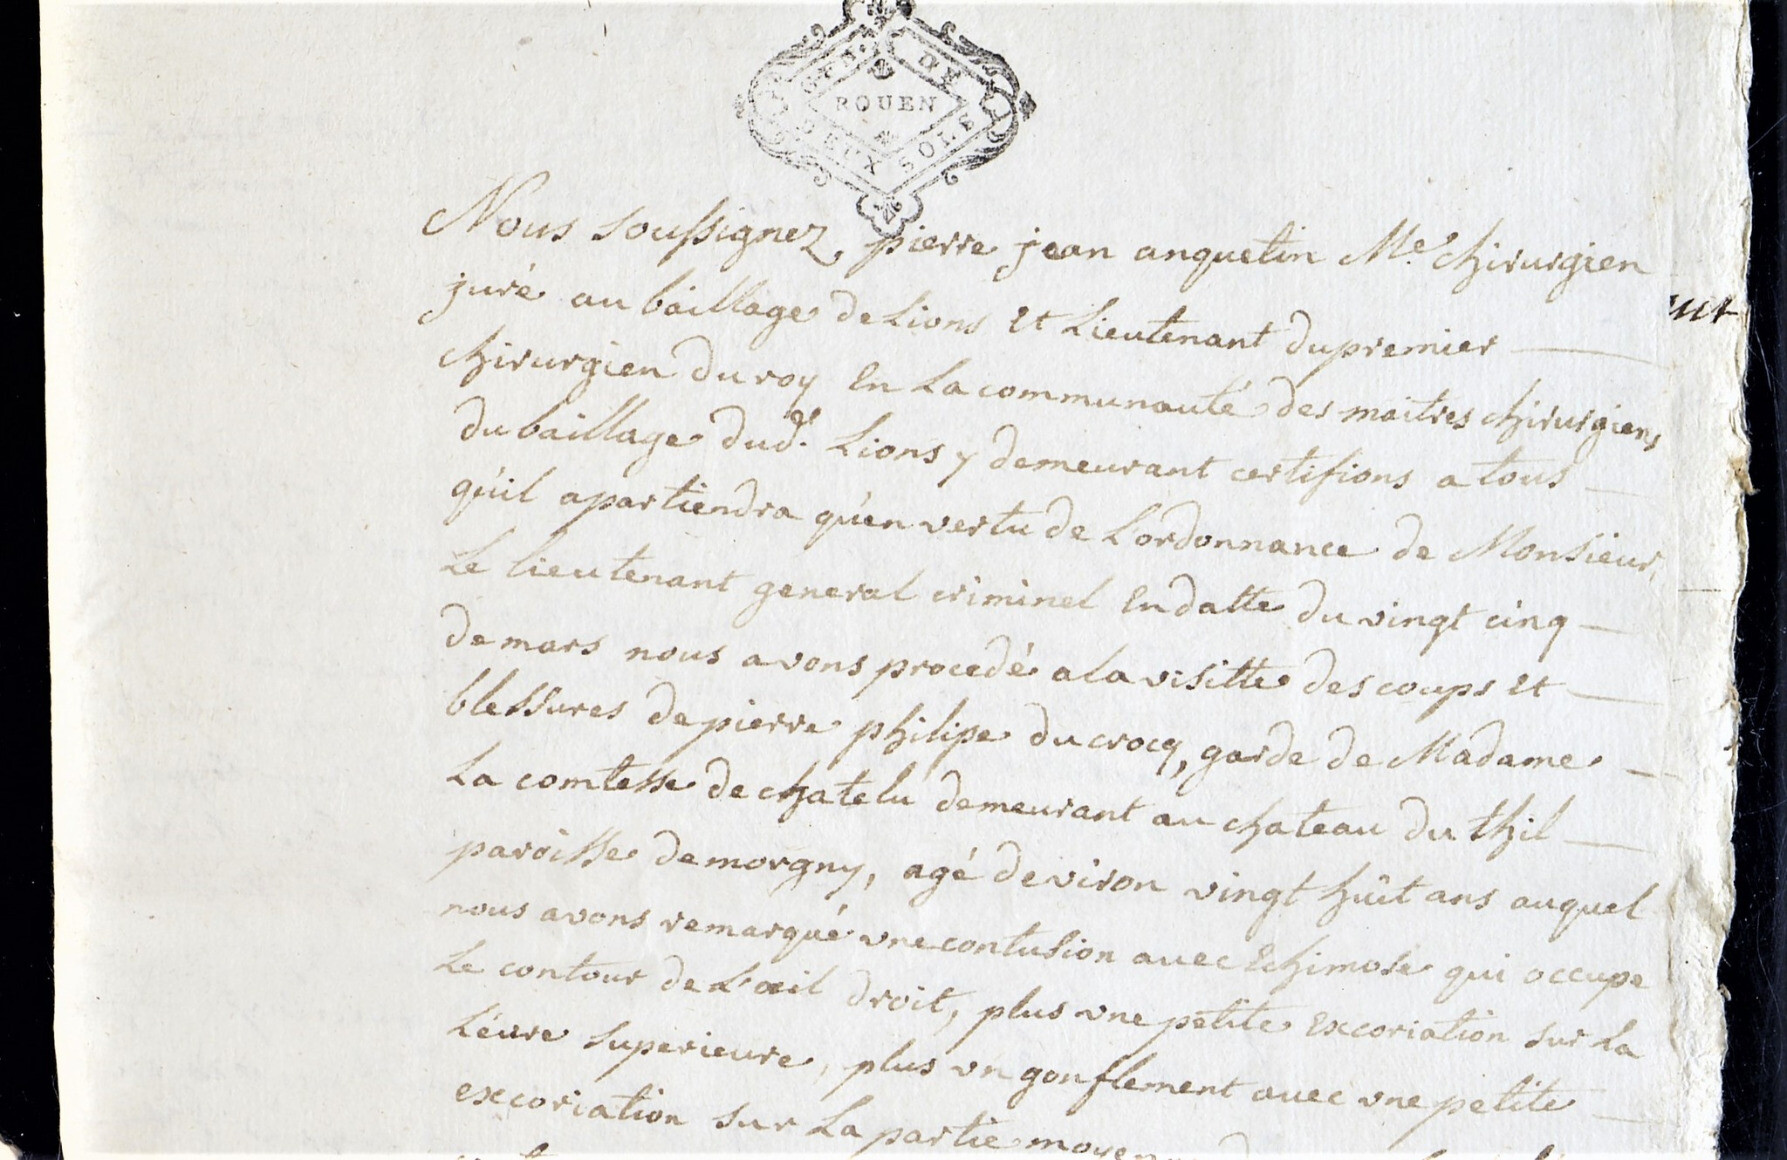 GEN. DE
ROUEN
DEUX SOLS
Nous soussignez, pierre jean anquetin Me. chirurgien
juré au baillage de Lions et Lieutenant du premier
chirurgien du roy en La communauté des maitres chirurgiens
du baillage dud. Lions y demeurant certifions a tous
qu'il apartiendra qu'en vertu de L'ordonnance de Monsieur
Le lieutenant general criminel en datte du vingt cinq
de mars nous avons procedé a la visitte des coups et
blessures de pierre philipe ducrocq, garde de Madame
La comtesse de chatelu demeurant au chateau du thil
paroisse de morgny, agé deviron vingt huit ans auquel
nous avons remarqué une contusion avec echimose qui occupe
Le contour de L'œil droit, plus une petite excoriation sur La
Lévre superieure, plus un gonflement avec une petite
excoriation sur La partie